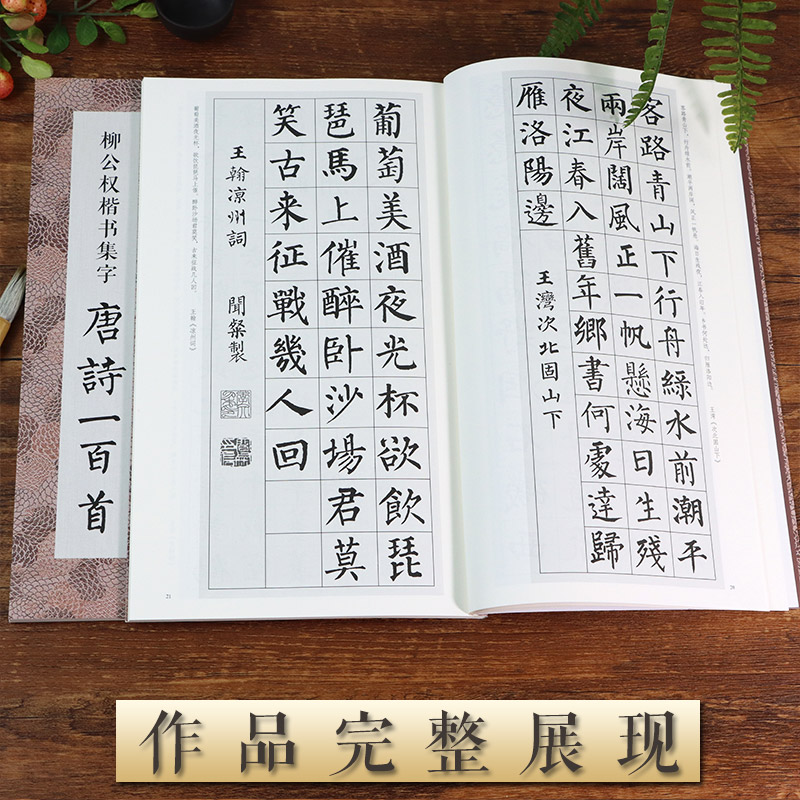 柳公权楷书集字
唐詩一百首
客路青山下行舟綠水前潮平
兩岸闊風正一帆懸海日生殘
夜江春入舊年鄉書何處達歸
雁洛陽邊
王灣次北固山下
20
葡萄美酒夜光杯欲飲琵
琶馬上催醉卧沙場君莫
笑古来征戰幾人回
王翰凉州詞
聞粲製
21
作品完整展现